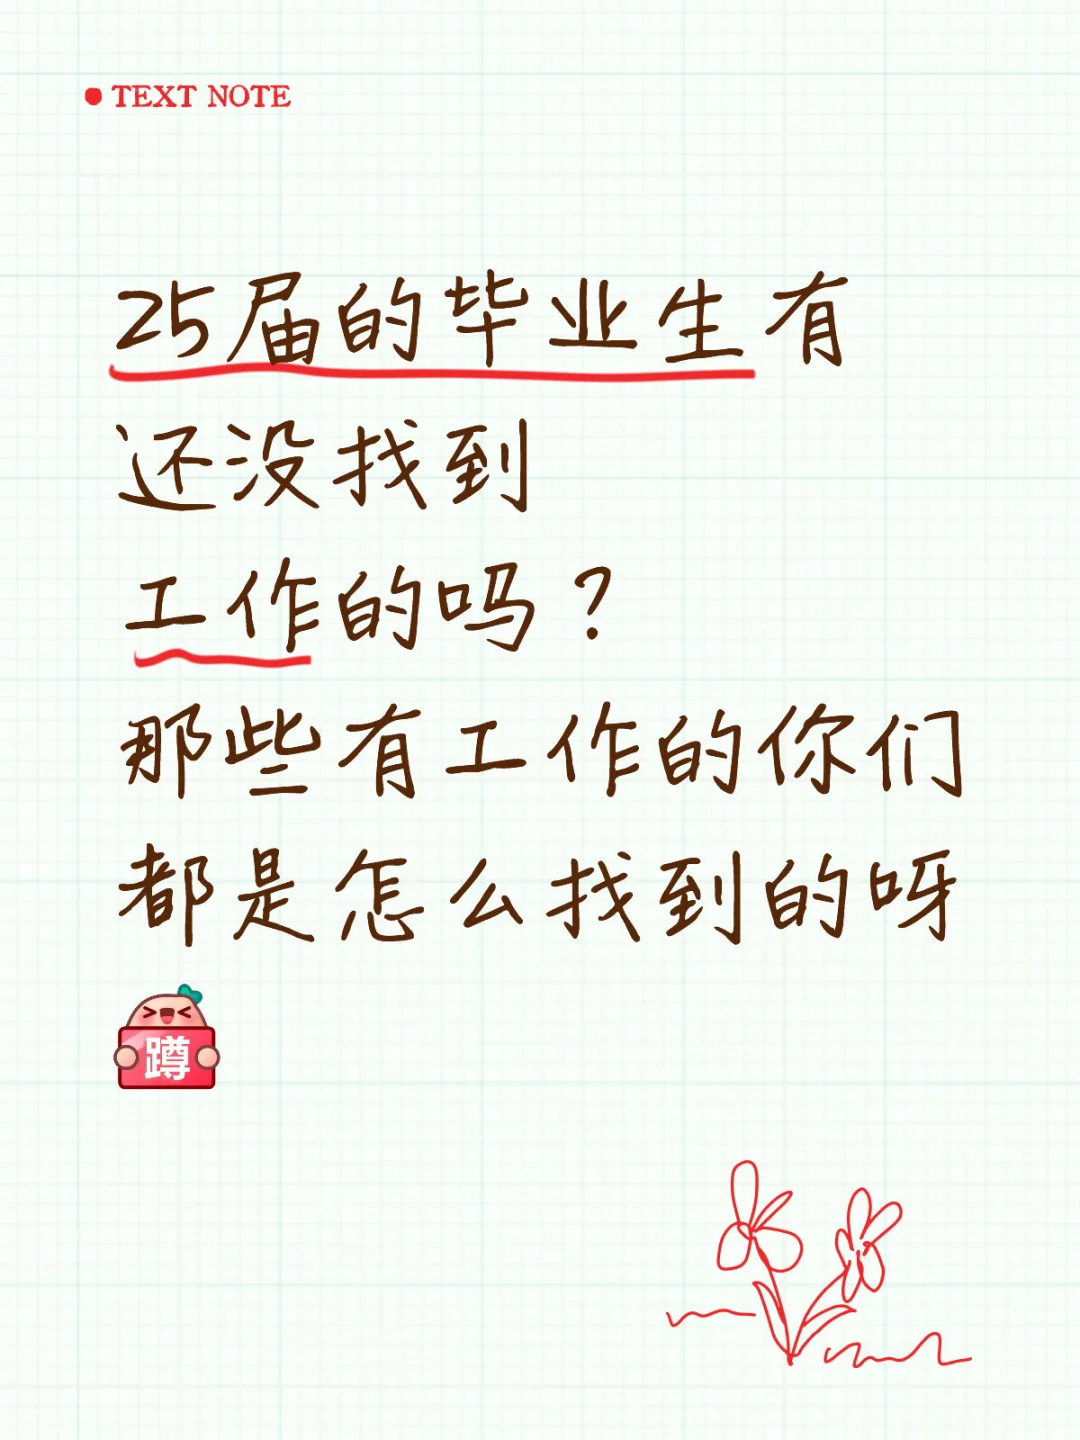 TEXT NOTE
25届的毕业生有
还没找到
工作的吗？
那些有工作的你们
都是怎么找到的呀
蹲